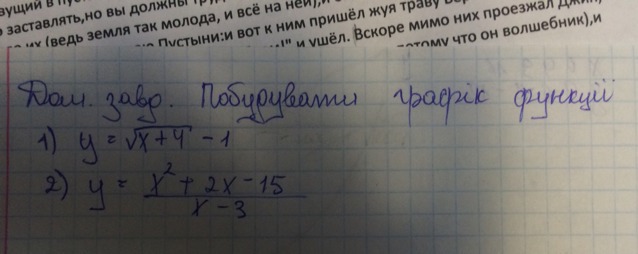 вущий в
заставлять,но вы должны
их (ведь земля так молода, и всё на ней),и
Пустыни:и вот к ним пришёл жуя траву
и ушёл. Вскоре мимо них проезжал Джин,
потому что он волшебник),и
Дом. завд. Побудувати графік функції
1) y = √x + 4 - 1
2) y = x² + 2x - 15
x - 3